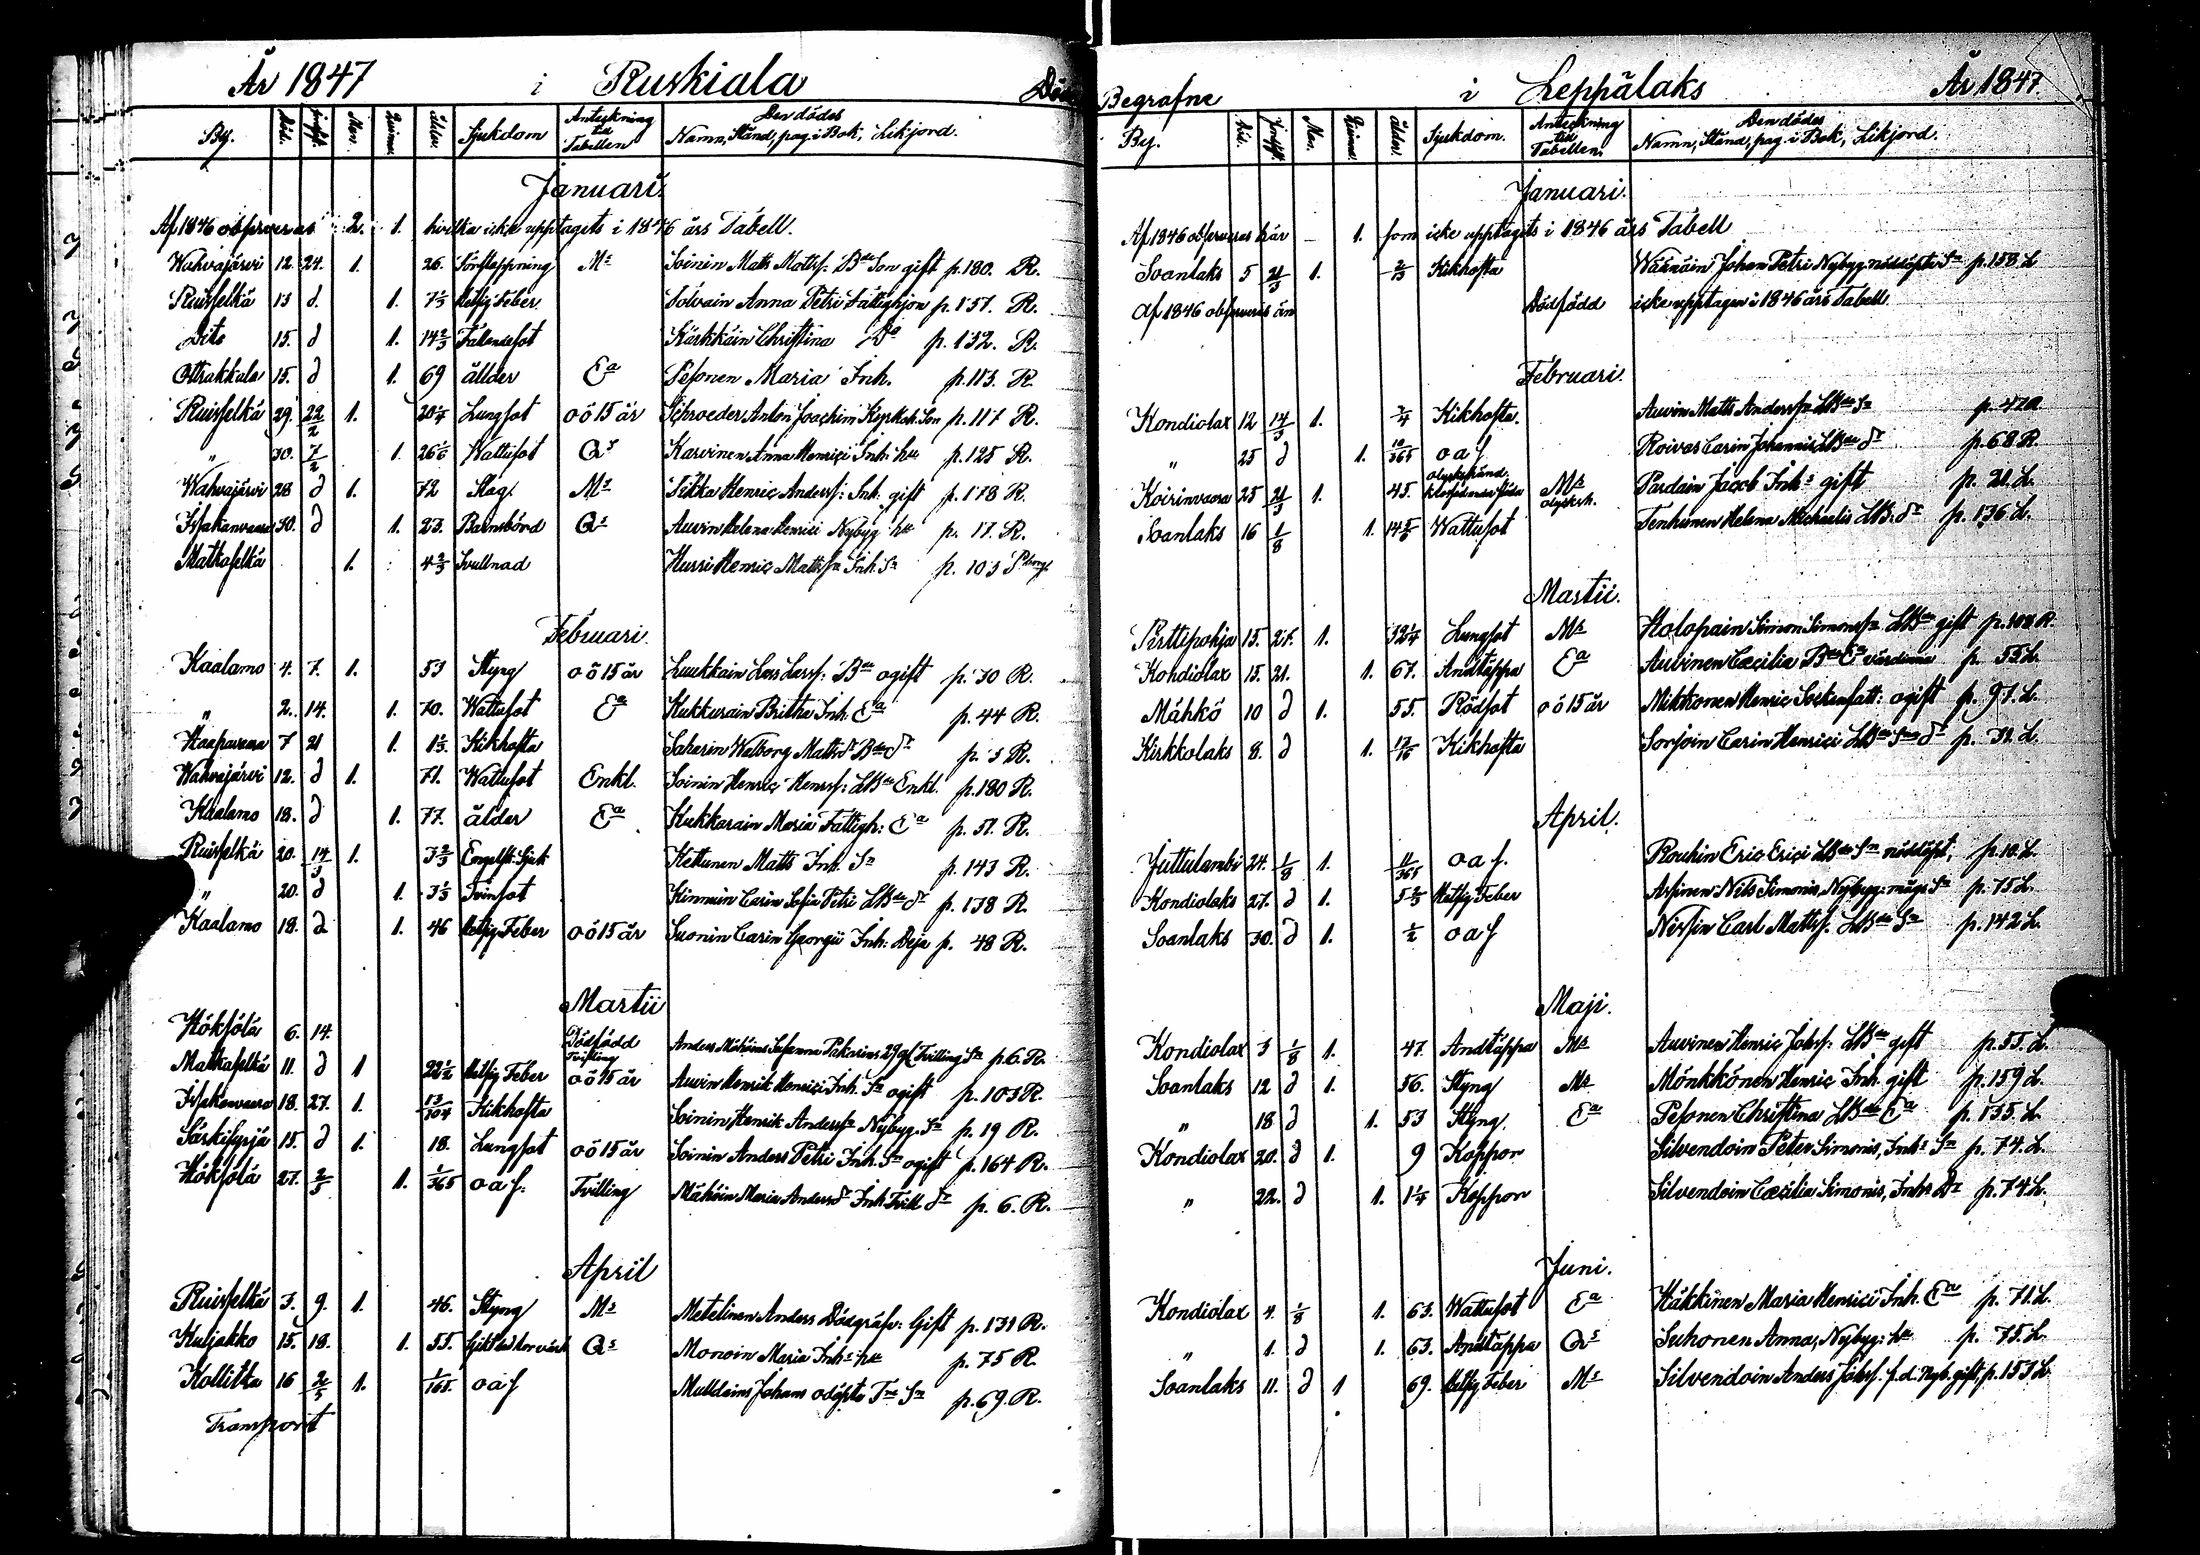 År 1847 i Ruskiala Döde
By. Död. Jordf. Mer. Qvinnor. ålder. Sjukdom Anteckning till Tabellen Den dödes Namn, Stånd, pag. i Bok, Likjord.
Januari.
Af 1846 observeras 2. 1. hvilka icke upptagits i 1846 års Tabell.
Wahvajärvi 12. 24. 1. 26. Ms Soinin Matts Mattsf: Bde Son gift p. 180. R.
Ruisselkä 13 d. 1. 7 1/3 Hetsig Feber Solvain Anna Petri Fattighjon p. 151. R.
Dito 15. d 1. 14 2/3 Fallandesot Kärkkäin Christina Do p. 132. R.
Otrakkala 15. d 1. 69 ålder Ea Pesonen Maria Inh. p. 113. R.
Ruisselkä 29. 22/2 1. 20 1/4 Lungsot o ö 15 år Schroeder Anton Joachim Son p. 117 R.
„ 30. 7/2 1. 26 1/6 Wattusot Qs Karvinen Anna Henrici Inh: hu p. 125 R.
Wahvajärvi 28 d 1. 72 Slag. Ms Sikka Henric Andersf: Inh. gift p. 178 R.
Issakanvaara 30. d 1. 23. Barnsbörd Qs Auvin Helena Henrici Nybyg hu p. 17. R.
Matkaselkä 1. 4 2/3 Svullnad Hurri Henric Mattsfn Inh Sn p. 103
Februari.
Kaalamo 4. 7. 1. 53 Styng o ö 15 år Luukkain Lars Larsf: Bde ogift p. 30 R.
„ 2. 14. 1. 70. Wattusot Ea Kukkurain Britha Inh. Ea p. 44 R.
Haapavaara 7 21 1 1 1/3. Kikhosta Saharin Walborg Mattsdr Bde dr p. 3 R.
Wahvajärvi 12. d 1. 71. Wattusot Enkl. Soinin Henric Henrsf: LBde Enkl. p. 180 R.
Kaalamo 18. d 1. 77. ålder Ea Kukkarain Maria Fattigh: Ea p. 51. R.
Ruisselkä 20. 14/3 1. 3 2/3 Engelsk: Sjuk Kettunen Matts Inh. Sn p. 143 R.
„ 20. d 1. 3 1/3 Tvinsot Kinnuin Carin Sofia Petri LBde dr p. 138 R.
Kaalamo 18. d 1. 46 Hetsig Feber o ö 15 år Suonin Carin Georgii Inh: Deja p. 48 R.
Martii
Hökfölä 6. 14. Dödfödd Tvilling Anders Mähöins Susanna Pakarins Tvilling Sn p. 6. R.
Matkaselkä 11. d 1 22 1/2 Hetsig Feber o ö 15 år Auvin Henrik Henrici Inh. Sn ogift p. 103 R.
Issakanvaara 18. 27. 1. 13/304 Kikhosta Soinin Henrik Andersfn Nybyg. Sn p. 19 R.
Särkisyrjä 15. d 1. 18. Lungsot o ö 15 år Soinin Anders Petri Inh. Sn ogift p. 164 R.
Hökfölä 27. 2/5 1. 1/365 o a f. Tvilling Mähöin Maria Andersdr Inh. Tvill dr p. 6. R.
April
Ruisselkä 3. 9. 1. 46. Styng Ms Metelinen Anders Dödgräfv: Gift p. 131 R.
Kuljakko 15. 18. 1. 55. Qs Monoin Maria Inhs hu p. 75 R.
Kollitka 16 2/5 1. 1/165. o a f Mulldains Johans odöpte Sn p. 69. R.
Transport
Begrafne i Leppälaks År 1847
By. Död. Jordf. Mer. Qvinnor. ålder. Sjukdom. Anteckning till Tabellen. Den dödes Namn, Stånd, pag. i Bok, Likjord.
Januari.
Af 1846 observeras här – 1. som icke upptagits i 1846 års Tabell
Soanlaks 5 21/3 1. 2/13 Kikhosta Wäänäin Johan Petri Nybyg. nöddöpte Sn p. 158. L
Af 1846 observeras än Dödfödd icke upptagen i 1846 års Tabell.
Februari.
Kondiolax 12 14/3 1. 3/4 Kikhosta. Auvin Matts Andersfn LBde Sn p. 47
„ 25 d 1. 10/365 o a f Roivas Carin Johannis LBde dr p. 68 R.
Koirinvaara 25 21/3 1. 45. olyckshänd. Ms olycksh. Pardain Jacob Inhs gift p. 21. L.
Soanlaks 16 1/8 1. 14 5/6 Wattusot Tenhunen Helena Michaelis LB. dr p. 136 L.
Martii.
Perttipohja 15. 21. 1. 32 1/4 Lungsot Ms Holopain Simon Simonsfn LBde gift p. 108 R
Kondiolax 15. 21. 1. 67. Andtäppa Ea Auvinen Cæcilia Bde Ea värdinna p. 55 L.
Mähkö 10 d 1. 55. Rödsot o ö 15 år Mikkonen Henric Sockensatt: ogift p. 97. L.
Kirkkolaks 8. d 1. Kikhosta Sorsoin Carin Henrici LBde dr p. 31. L.
April.
Juttulambi 24. 1/8 1. 11/365 o a f. Rouhin Eric Erici LBde Sn nöddöpt, p. 10. L.
Kondiolaks 27. d 1. 5 2/3 Hetsig Feber Asinen Nils Simonis, Nybygg: mågs Sn p. 75 L.
Soanlaks 30. d 1. 1/2 o a f Nissin Carl Mattsf. LBde Sn p. 142 L.
Maji.
Kondiolax 3 1/8 1. 47. Andtäppa Ms Auvinen Henric Johsf: LBde gift p. 55. L.
Soanlaks 12 d 1. 56. Styng Ms Mönkkönen Henric Inh. gift p. 159 L.
„ 18 d 1. 53 Styng. Ea Pesonen Christina LBde Ea p. 135. L.
Kondiolax 20. d 1. 9 Koppor Silvendoin Peter Simonis, Inhs Sn p. 74. L.
„ 22. d 1. 1 1/4 Koppor Silvendoin Cæcilia Simonis, Inhs Dr p. 74 L.
Juni.
Kondiolax 4. 1/8 1. 63. Wattusot Ea Häkkinen Maria Henrici Inh. Ea p. 71. L.
„ 1. d 1. 63. Andtäppa Qs Suhonen Anna, Nybyg: hu p. 75. L.
Soanlaks 11. d 1 69. Hetsig Feber Ms Silvendoin Anders Johsf. f.d. Nyb. gift, p. 153 L